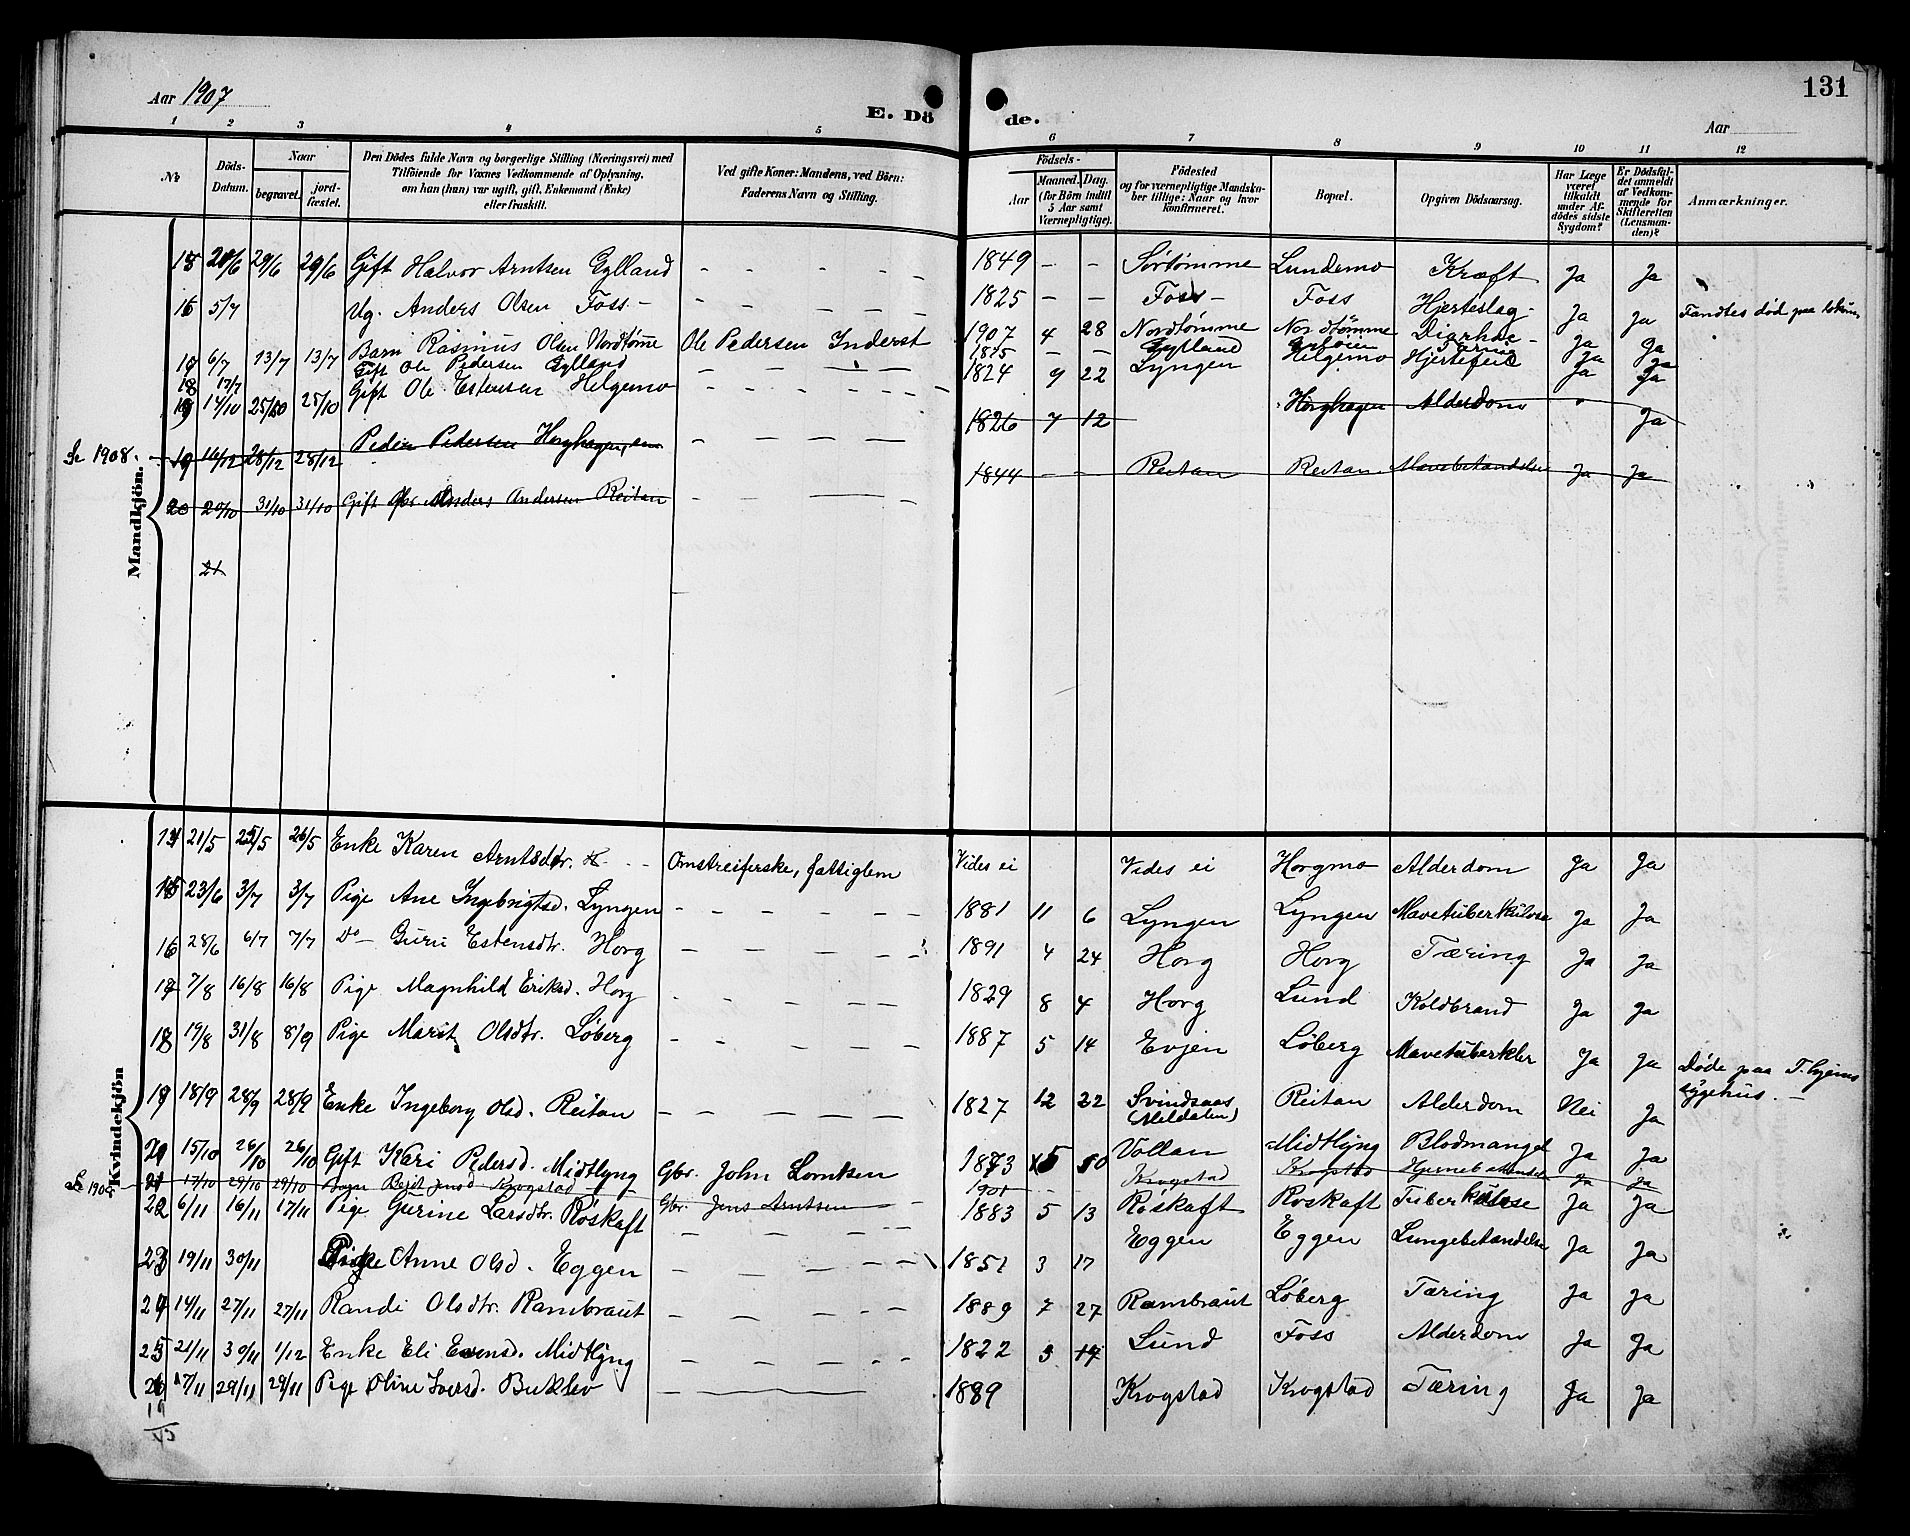 Aar 1907
E. Dö de.
131
Aar
1 2 3 4 5 6 7 8 9 10 11 12
No
Döds-Datum.
Naar
begravet.
jord-fæstet.
Den Dödes fulde Navn og borgerlige Stilling (Næringsvei) med
Tilföiende for Voxnes Vedkommende af Oplysning,
om han (hun) var ugift, gift, Enkemand (Enke)
eller fraskilt.
Ved gifte Koner: Mandens, ved Börn:
Faderens Navn og Stilling.
Födsels-
Aar
Maaned. Dag.
(for Börn indtil
5 Aar samt
Værnepligtige).
Födested
og for værnepligtige Mandska-
ber tillige: Naar og hvor
konfirmeret.
Bopæl.
Opgiven Dödsaarsag.
Har Læge
været
tilkaldt
under Af-
dödes sidste
Sygdom?
Er Dödsfal-
det anmeldt
af Vedkom-
mende for
Skifteretten
(Lensman-
den)?
Anmærkninger.
Mandkjön.
15 29/6 29/6 Gift Halvor Arntsen Gylland – – – – 1849 – – Sørtømme Lundemo Kræft Ja Ja
16 5/7 Ug. Anders Olsen Foss – – – – – 1825 – – Foss – Foss Hjerteslag – Ja Ja Fandtes død paa
17 6/7 13/7 13/7 Barn Rasmus Olsen Nordtømme Ole Pedersen Inderst 1907 4 28 Nordtømme Nordtømme Diarhoe – Ja Ja
18 17/7 Gift Ole Pedersen Gylland – – – – – Gylland Ja Ja
19 14/10 25/10 25/10 Gift Ole Estensen Helgemo – – – – 1824 9 22 Lyngen Helgemo Hjertefeil Ja Ja
Se 1908. 19 16/12 28/12 28/12 Peder Pedersen Horghagen, – – – – 1826 7 12 Horghagen Alderdom " Ja
20 20/10 31/10 31/10 Gift Anders Andersen Reitan – – – – 1844 – – Reitan Reitan Mavebetændelse Ja Ja
21
Kvindekjön
14 21/5 25/5 26/5 Enke Karen Arntsdtr. – – Omstreiferske, fattiglem Vides ei Vides ei Horgmo Alderdom Ja Ja
15 23/6 3/7 3/7 Pige Ane Ingebrigtsd. Lyngen – – – – – 1881 11 6 Lyngen Lyngen Mavetuberkulose Ja Ja
16 28/6 6/7 7/7 Do – Guru Estensdtr. Horg – – – – – 1891 4 24 Horg Horg Tæring Ja Ja
17 7/8 16/8 16/8 Pige Magnhild Eriksd. Horg – – – – – 1829 8 4 Horg Lund Koldbrand Ja Ja
18 19/8 31/8 8/9 Pige Marit Olsdtr. Løberg – – – – – 1887 5 14 Evjen Løberg Mavetuberkler Ja Ja Døde paa T.hjems
sygehus. –
19 18/9 28/9 28/9 Enke Ingeborg Olsd. Reitan – – – – – 1827 12 22 Svindsaas
(Meldalen) Reitan Alderdom Nei Ja
20 15/10 26/10 26/10 Gift Kari Pedersd. Midtlyng Gbr. John Lorntsen 1873 5 Vollan Midtlyng Blodmangel Ja Ja
Se 1908. 21 17/10 29/10 29/10 Barn Berit Jensd Krogstad Gbr. Jens Arntsen 1901 – – Krogstad Krogstad Hjernebetændelse Ja Ja
22 6/11 16/11 17/11 Pige Gurine Larsdtr. Røskaft – – – – – 1883 5 13 Røskaft Røskaft Tuberkulose Ja Ja
23 19/11 30/11 Pige Anne Olsd. Eggen – – – – – 1851 3 17 Eggen Eggen Lungebetændelse Ja Ja
24 14/11 27/11 27/11 Randi Olsdtr. Rambraut – – – – – 1889 7 27 Rambraut Løberg Tæring Ja Ja
25 21/11 30/11 1/12 Enke Eli Evensd. Midtlyng – – – – – 1822 3 Lund Foss Alderdom Ja Ja
26 17/11 29/11 29/11 Pige Oline Iversd. Buklev – – – – 1889 Krogstad Krogstad Tæring Ja Ja